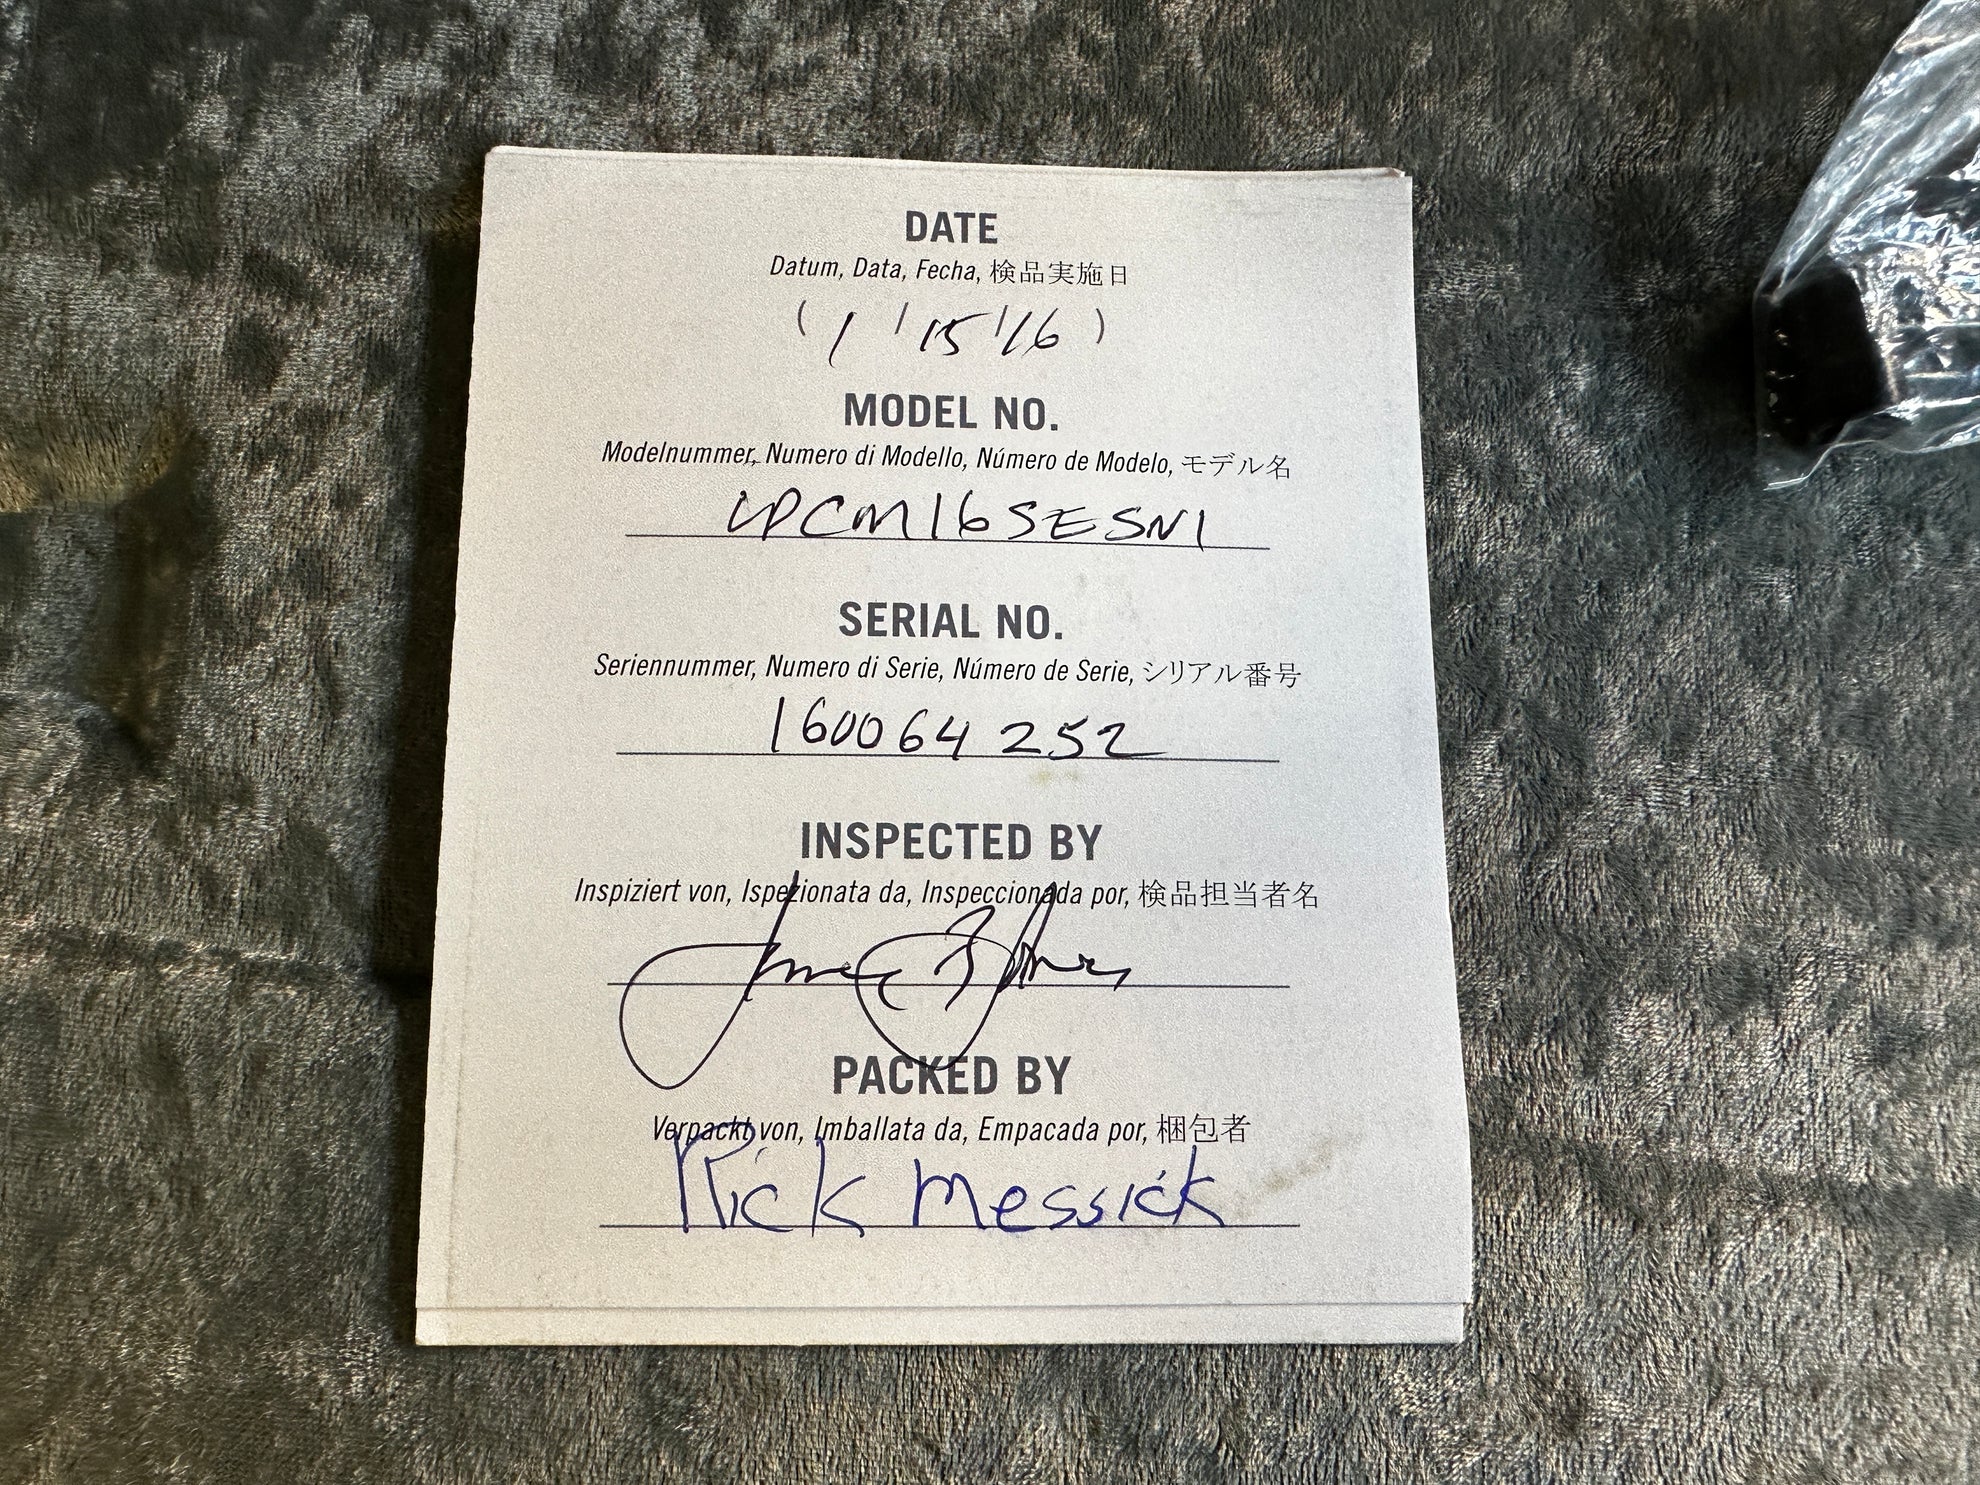 DATE
Datum, Data, Fecha, 検品実施日
( 1 / 15 / 16 )
MODEL NO.
Modelnummer, Numero di Modello, Número de Modelo, モデル名
LPCM16SESN1
SERIAL NO.
Seriennummer, Numero di Serie, Número de Serie, シリアル番号
160064252
INSPECTED BY
Inspiziert von, Ispezionata da, Inspeccionada por, 検品担当者名
PACKED BY
Verpackt von, Imballata da, Empacada por, 梱包者
Rick Messick